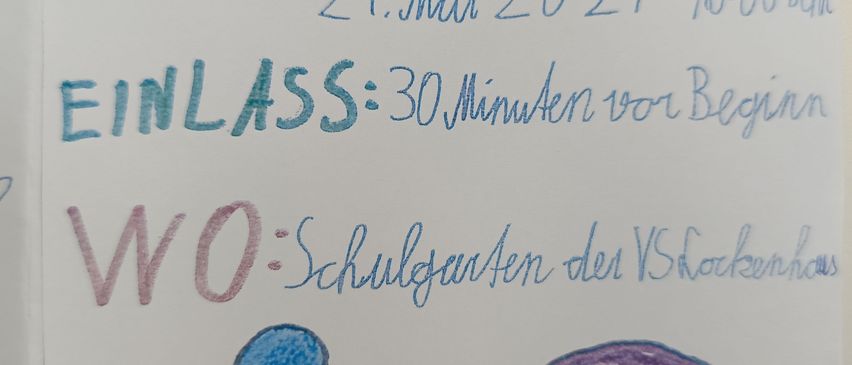 EINLASS: 30 Minuten vor Beginn
WO: Schulgarten der VS Lockenhaus